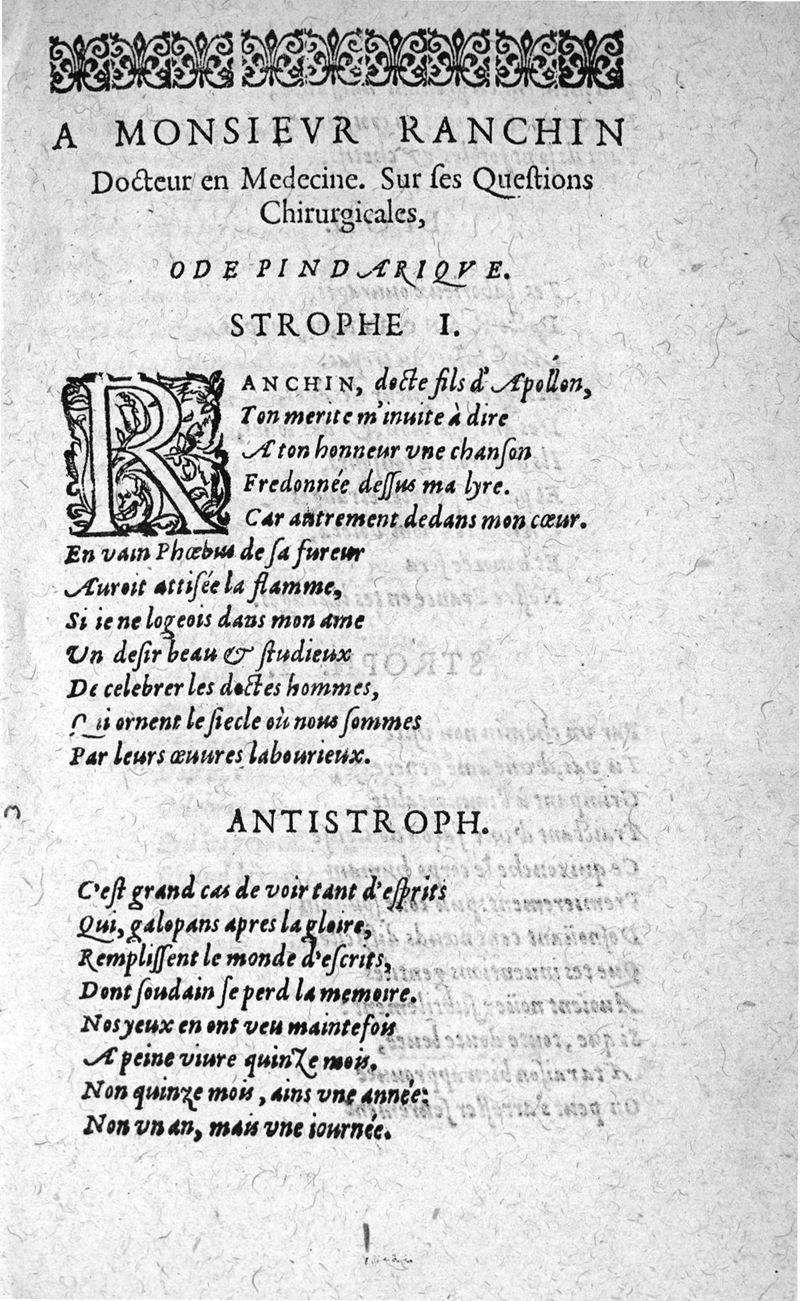 A MONSIEVR RANCHIN
Docteur en Medecine. Sur ſes Queſtions
Chirurgicales,
ODE PINDARIQVE.
STROPHE I.
RANCHIN, docte fils d'Apollon,
Ton merite m'inuite à dire
A ton honneur vne chanſon
Fredonnée deſſus ma lyre.
Car autrement dedans mon cœur.
En vain Phœbus de ſa fureur
Auroit attiſée la flamme,
Si ie ne logeois dans mon ame
Un deſir beau & ſtudieux
De celebrer les doctes hommes,
Qui ornent le ſiecle où nous ſommes
Par leurs œuures labourieux.
ANTISTROPH.
C'eſt grand cas de voir tant d'eſprits
Qui, galopans apres la gloire,
Rempliſſent le monde d'eſcrits,
Dont ſoudain ſe perd la memoire.
Nos yeux en ont veu maintefois
A peine viure quinze mois,
Non quinze mois, ains vne année:
Non vn an, mais vne iournée.